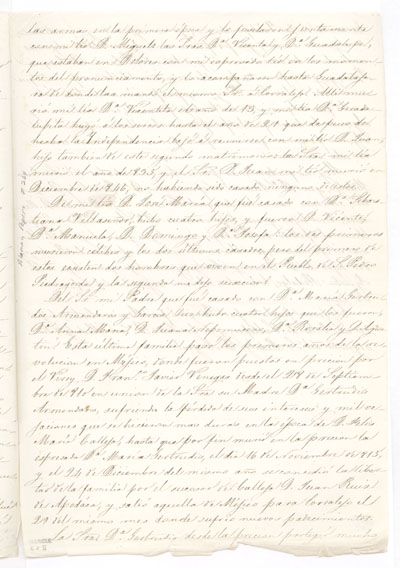 las armas en la primera época y lo fusilaron; juntamente
con mi tio D. Miguel las Sras. Da. Vicenta y Da. Guadalupe,
que estaban en Dolores con mi espresado tio en los momen-
tos del pronunciamiento, y lo acompañaron hasta Guadalaja-
ra de donde las mandó el mismo Sr. a Corralejo. Alli mu-
rió mi tia Da. Vicentita el año de 13, y mi tia Da. Guada-
lupita huyó á los cerros hasta el año de 21 que despues de
hecha la Independencia bajó á reunirse con mi tio D. Juan,
hijo tambien de este segundo matrimonio; la Sra. mi tia
murió el año de 1825, y el Sr. D. Juan mi tio murió en
Diciembre de 1846, no habiendo sido casado ninguno de ellos.
De mi tio D. José Maria que fué casado con Da. Sebas-
tiana Villaseñor, hubo cuatro hijos, y fueron D. Vicente,
Da. Manuela, D. Domingo y Da. Josefa: los dos primeros
murieron célibes y los dos últimos casados, pero del primero de
estos existen dos hombres que viven en el Pueblo de S. Pedro
Piedragorda y la segunda no dejó sucesion.
Del Sr. mi Padre que fué casado con Da. Maria Gertru-
dis Armendaris y Garcia hubo cuatro hijos que los fueron,
Da. Anna Maria, D. Juan Nepomuceno, Da. Rosalia y D. Agus-
tin. Esta última familia pasó los primeros años de la re-
volucion en México, donde fueron puestas en prision por
el Virey D. Francisco Javier Venegas desde el 28 de Septiem-
bre de 810 en union de la Sra. su Madre Da. Gertrudis
Armendaris, sufriendo la pérdida de sus intereses y mil ve-
jaciones que se hicieron mas duras en la época de D. Felix
Maria Calleja, hasta que por fin murió en la prision la
espresada Da. Maria Gertrudis, el dia 16 de Noviembre de 1815,
y el 24 de Diciembre del mismo año se concedió la liber-
tad de la familia por el sucesor de Calleja D. Juan Ruiz
de Apodaca, y salió aquella de México para Corralejo el
29 del mismo mes donde sufrió nuevos padecimientos.
La Sra. Da. Gertrudis desde la prision protegió mucho